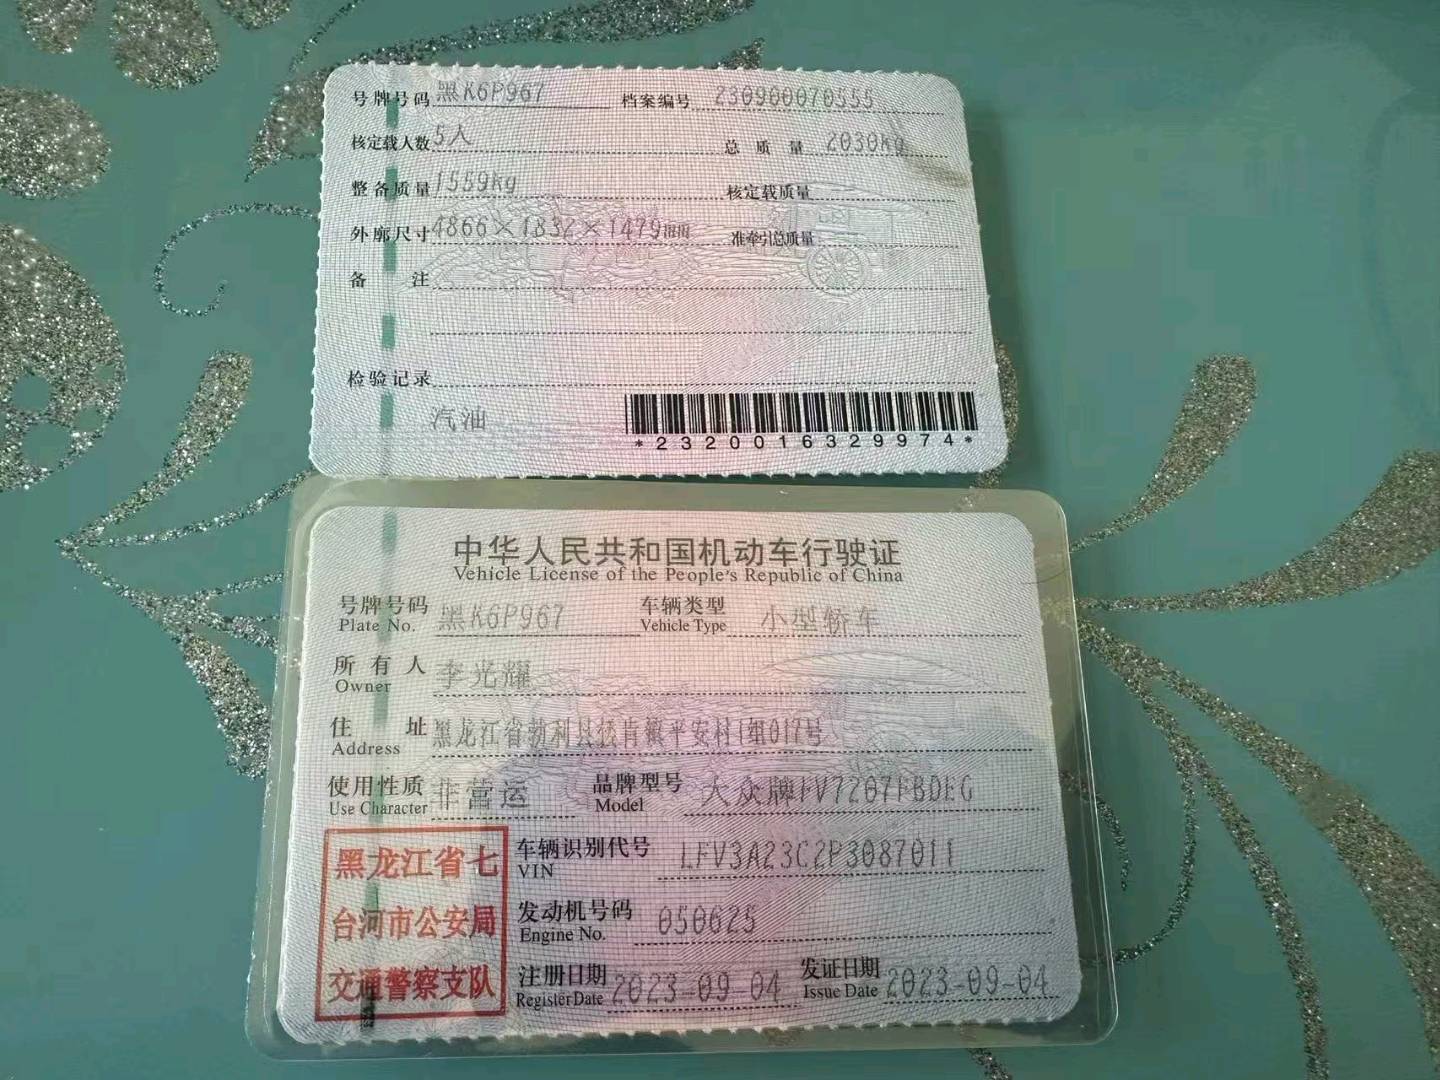 号牌号码 黑K6P967 档案编号 230900070555
核定载人数 5人 总质量 2030kg
整备质量 1559kg 核定载质量
外廓尺寸 4866×1832×1479mm 准牵引总质量
备注
检验记录
汽油
*2320016329974*
中华人民共和国机动车行驶证
Vehicle License of the People's Republic of China
号牌号码 黑K6P967 车辆类型 小型轿车
Plate No. Vehicle Type
所有人 李光耀
Owner
住址 黑龙江省勃利县 肯镇平安村1组017号
Address
使用性质 非营运 品牌型号 大众牌FV7207FBDEG
Use Character Model
车辆识别代号 LFV3A23C2P3087011
VIN
发动机号码 050625
Engine No.
注册日期 2023-09-04 发证日期 2023-09-04
Register Date Issue Date
黑龙江省七
台河市公安局
交通警察支队